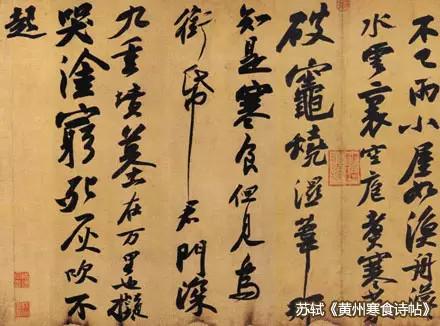 不已雨小屋如漁舟濛
水雲裏空庖煮寒
破竈燒濕葦那
知是寒食但見烏
銜帋君門深
九重墳墓在万里也擬
哭塗窮死灰吹不
起
苏轼《黄州寒食诗帖》